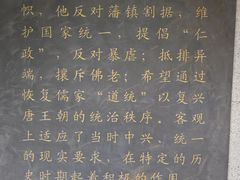 帜，他反对藩镇割据，维
护国家统一，提倡“仁
政”，反对暴虐；抵排异
端，攘斥佛老；希望通过
恢复儒家“道统”以复兴
唐王朝的统治秩序。客观
上适应了当时中兴、统一
的现实要求，在特定的历
史时期起着积极的作用。